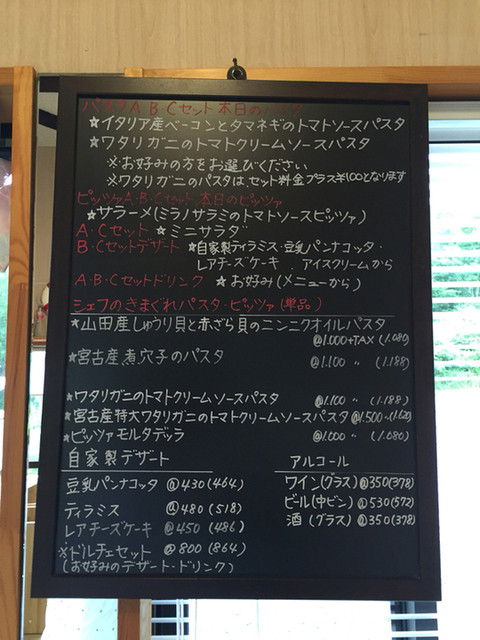 パスタA・B・Cセット本日のパスタ
★イタリア産ベーコンとタマネギのトマトソースパスタ
★ワタリガニのトマトクリームソースパスタ
※お好みの方をお選びください
※ワタリガニのパスタは、セット料金プラス¥100となります
ピッツァA・B・Cセット本日のピッツァ
★サラーメ(ミラノサラミのトマトソースピッツァ)
A・Cセット ★ミニサラダ
B・Cセットデザート ★自家製ティラミス・豆乳パンナコッタ・
レアチーズケーキ、アイスクリームから
A・B・Cセットドリンク ★お好み(メニューから)
シェフのきまぐれパスタ・ピッツァ(単品)
★山田産しゅうり貝と赤ざら貝のニンニクオイルパスタ
@1.000+TAX (1.080)
★宮古産煮穴子のパスタ @1.100 〃 (1.188)
★ワタリガニのトマトクリームソースパスタ @1.100 〃 (1.188)
★宮古産特大ワタリガニのトマトクリームソースパスタ @1.500 〃 (1.620)
★ピッツァモルタデッラ @1.000 〃 (1.080)
自家製デザート
豆乳パンナコッタ @430(464)
ティラミス @480(518)
レアチーズケーキ @450(486)
※ドルチェセット @800(864)
(お好みのデザート・ドリンク)
アルコール
ワイン(グラス) @350(378)
ビール(中ビン) @530(572)
酒(グラス) @350(378)